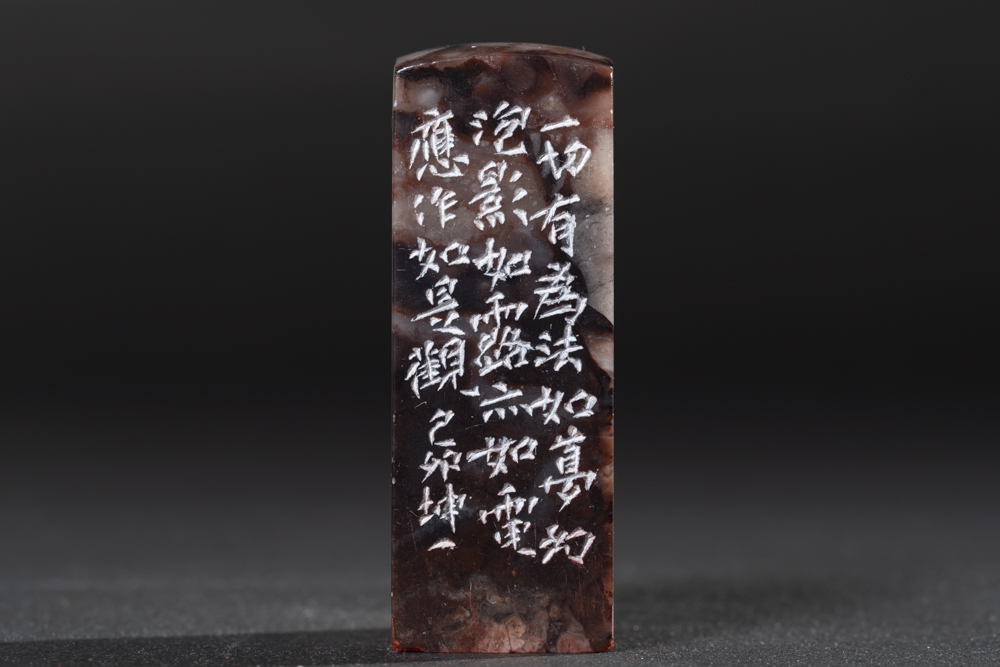 一切有為法如夢幻
泡影如露亦如電
應作如是觀己卯坤一